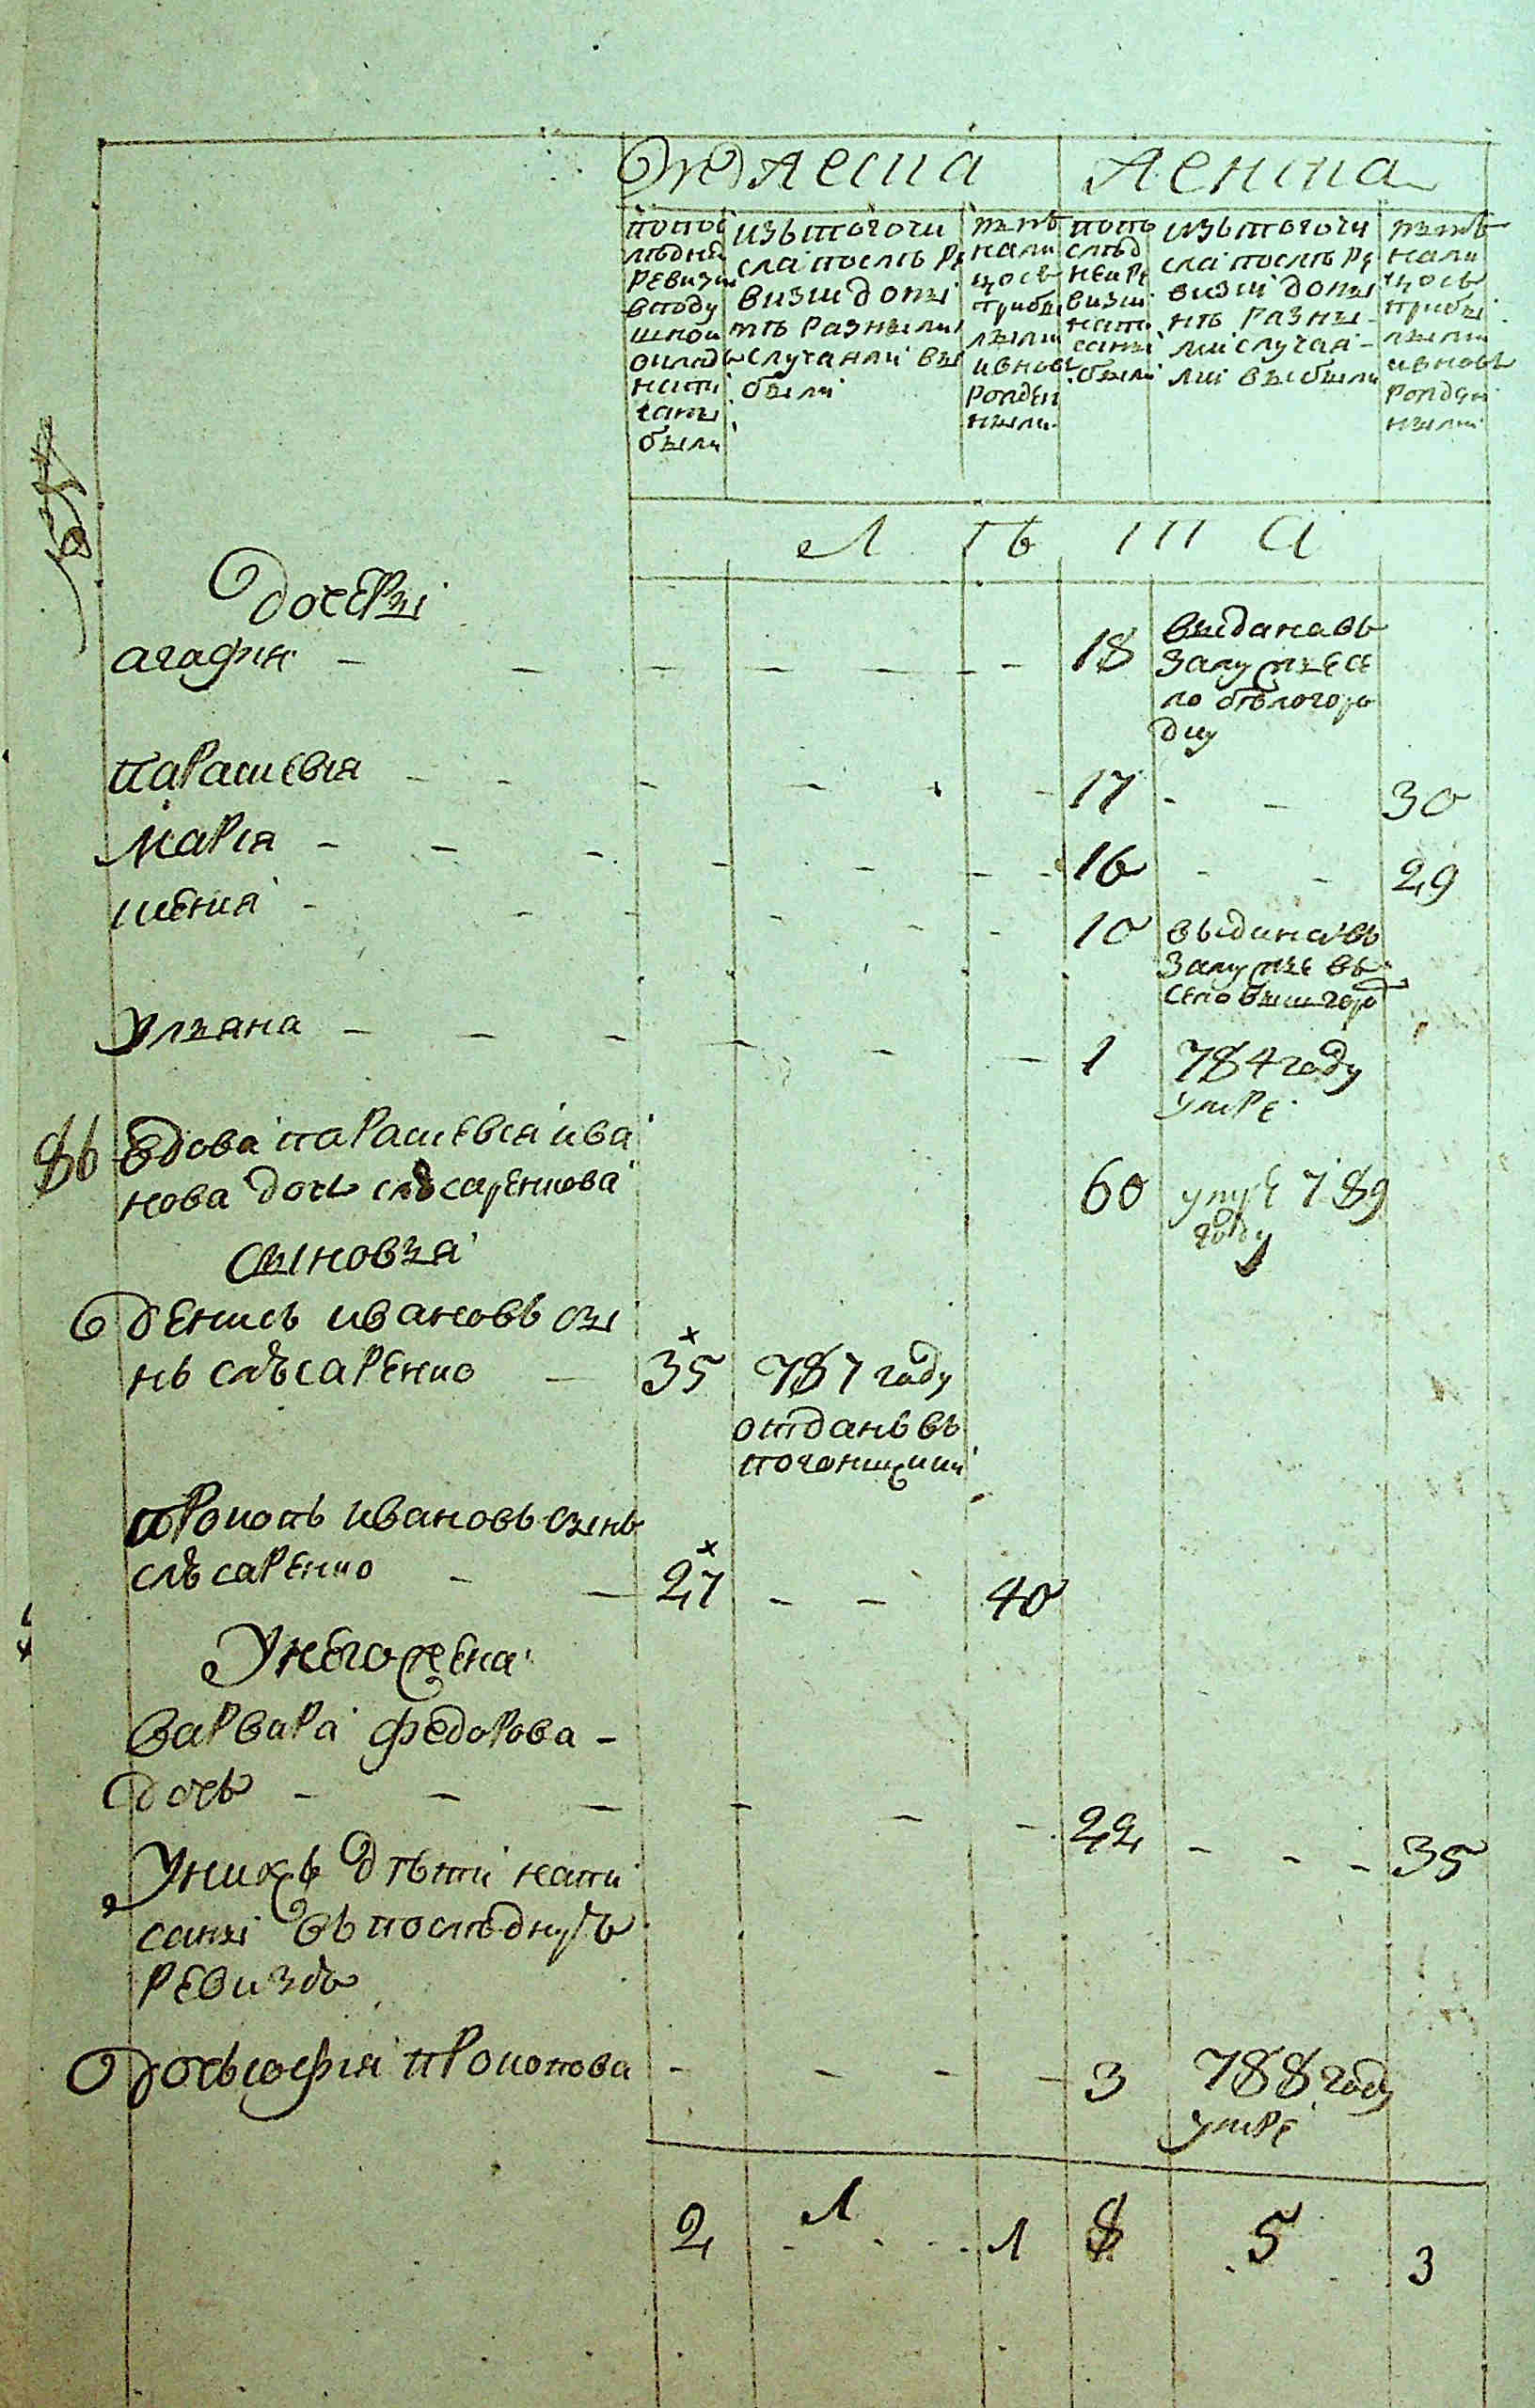 Мужеска
Женска
по пос
лѣдней
ревизии
в поду
шной
окладъ
напи
саны
были
изъ того чи
сла послѣ ре
визии до ны
нѣ разными
случаями вы
были
нынѣ
нали
цось
прибы
лыми
и вновь
рожден
ными
по по
слѣд
ней ре
визии
напи
саны
были
изъ того чи
сла послѣ ре
визии до ны
нѣ разны
ми случая
ми выбыли
нынѣ
нали
цось
прибы
лыми
и вновь
рожден
ными
Л ѣ т а
дочеры
агафия 18 выдана въ
замужъе се
ло бѣлогоро
дку
параскевия 17 30
Мария 16 29
10 выдана въ
замуже въ
село вышгоро
Ульяна 1 784 году
умре
86 вдова параскевия ива
нова дочь слѣсаренкова 60 умре 789
году
сыновья
денисъ ивановъ сы
нъ слѣсаренко 35 787 году
отданъ въ
погонщики
прокопъ ивановъ сынъ
слѣсаренко 27 40
У него жена
варвара федорова
дочь 22 35
У нихъ дѣти напи
саны въ последнуъ
ревизъ
дочь софия прокопова 3 788 году
умре
2 1 1 8 5 3